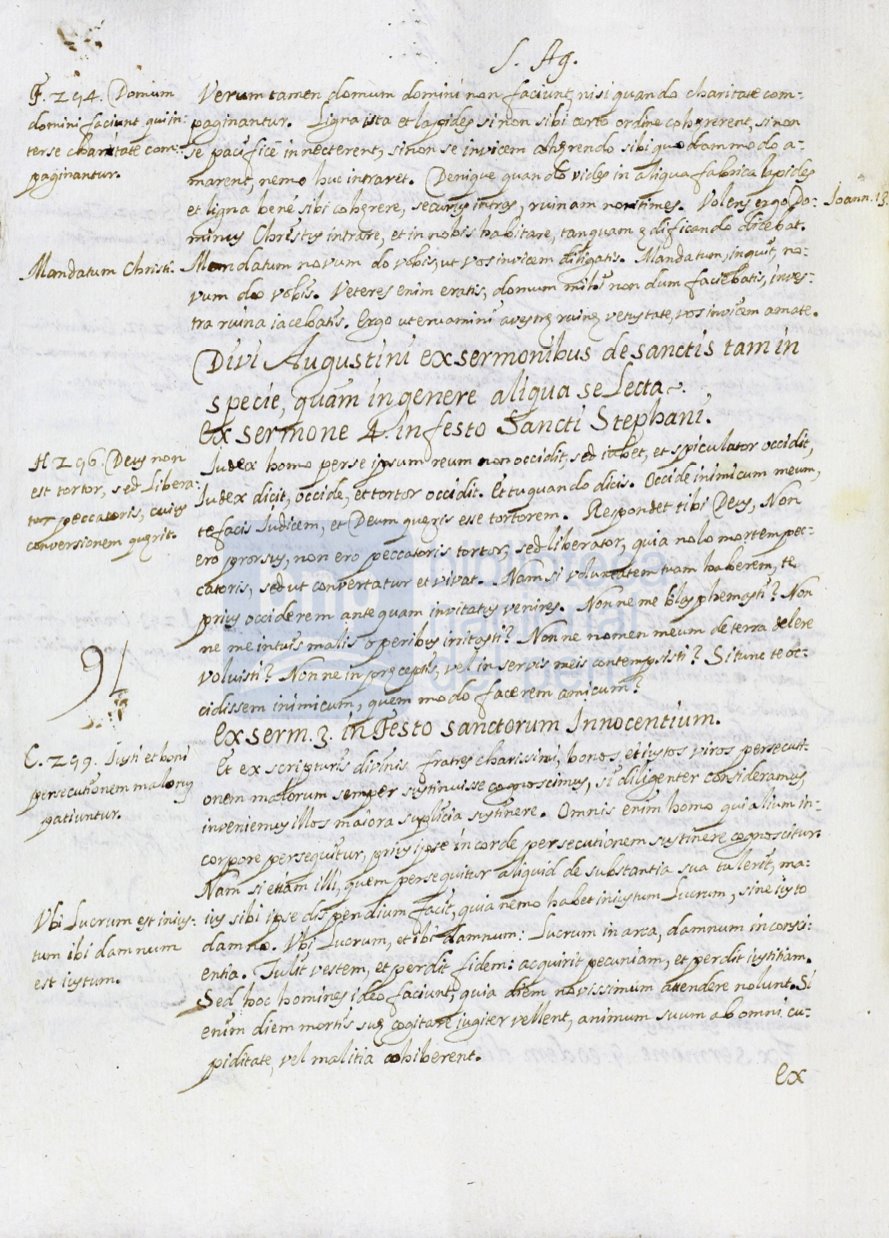 S. Ag.
F. 294. Domum
domini faciunt qui in-
ter se charitate com-
paginantur.
Verum tamen domum domini non faciunt, nisi quando charitate com-
paginantur. Ligna ista et lapides si non sibi certo ordine cohęrerent, si non
se pacifice innecterent, si non se invicem cohęrendo sibi quodammodo a-
marent, nemo huc intraret. Denique quando vides in aliqua fabrica lapides
et ligna bene sibi coherere, securus intras, ruinam non times. Volens ergo Do-
Joann. 13.
minus Christus intrare, et in nobis habitare, tanquam ędificando dicebat.
Mandatum Christi.
Mandatum novum do vobis, ut vos invicem diligatis. Mandatum, inquit, no-
vum do vobis. Veteres enim eratis, domum mihi nondum faciebatis, in ves-
tra ruina iacebatis. Ergo ut eruamini a vestrę ruinę vetustate, vos invicem amate.
Divi Augustini ex sermonibus de sanctis tam in
specie, quam in genere aliqua selecta.
Ex sermone 4. in festo Sancti Stephani.
H 296. Deus non
est tortor, sed libera-
tor peccatoris, cuius
conversionem quęrit.
Judex homo per se ipsum reum non occidit, sed iubet, et spiculator occidit,
Judex dicit, occide, et tortor occidit. Et tu quando dicis. Occide inimicum meum,
te facis Judicem, et Deum quęris esse tortorem. Respondet tibi Deus, Non
ero prorsus, non ero peccatoris tortor, sed liberator, quia nolo mortem pec-
catoris, sed ut convertatur et vivat. Nam si voluntatem tuam haberem, te
prius occiderem antequam invitatus venires. Nonne me blasphemasti? Non
ne me in tuis malis operibus irritasti? Nonne nomen meum de terra delere
voluisti? Nonne in pręceptis, vel in servis meis contempsisti? Si tunc te oc-
cidissem inimicum, quem modo facerem amicum?
Ex serm. 3. in Festo sanctorum Innocentium.
C. 299. Justi et boni
persecutionem malorum
patiuntur.
Et ex scripturis divinis fratres charissimi, bonos, et iustos viros persecuti-
onem malorum semper sustinuisse cognoscimus, si diligenter consideramus
inveniemus illos maiora suplicia sustinere. Omnis enim homo qui alium in
corpore persequitur, prius ipse in corde persecutionem sustinere cognoscitur.
Nam si etiam illi, quem persequitur aliquid de substantia sua tulerit, ma-
Vbi Lucrum est inius-
tum ibi damnum
est iustum.
ius sibi ipse dispendium facit, quia nemo habet iniustum Lucrum, sine iusto
damno. Vbi Lucrum, et ibi damnum: Lucrum in arca, damnum in consci-
entia. Tulit vestem, et perdit fidem: acquirit pecuniam, et perdit iustitiam.
Sed hoc homines ideo faciunt, quia diem novissimum attendere nolunt. Si
enim diem mortis suę cogitare iugiter vellent, animum suum ab omni cu-
piditate, vel malitia cohiberent.
Ex
biblioteca
nacional
del perú